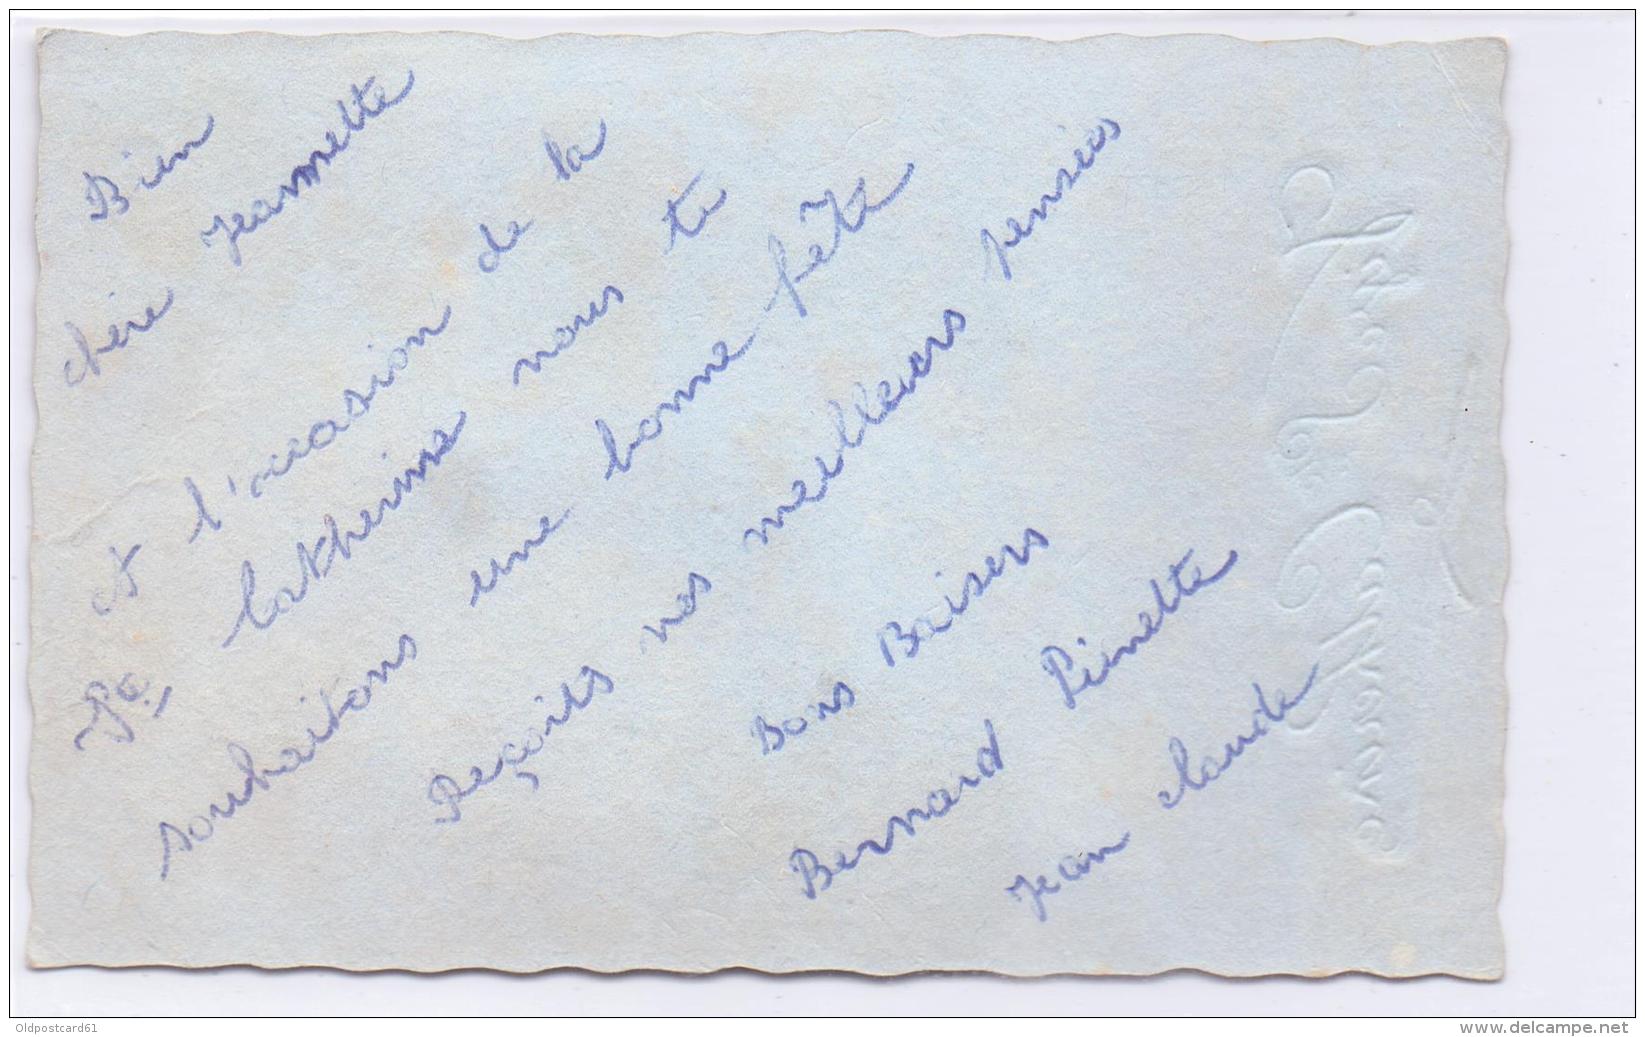 Bien
chère Jeannette
et l'occasion de la
Ste Catherine nous te
souhaitons une bonne fête
Reçoits nos meilleurs pensées
Bons Baisers
Bernard Pierrette
Jean Claude
Oldpostcard61
www.delcampe.net